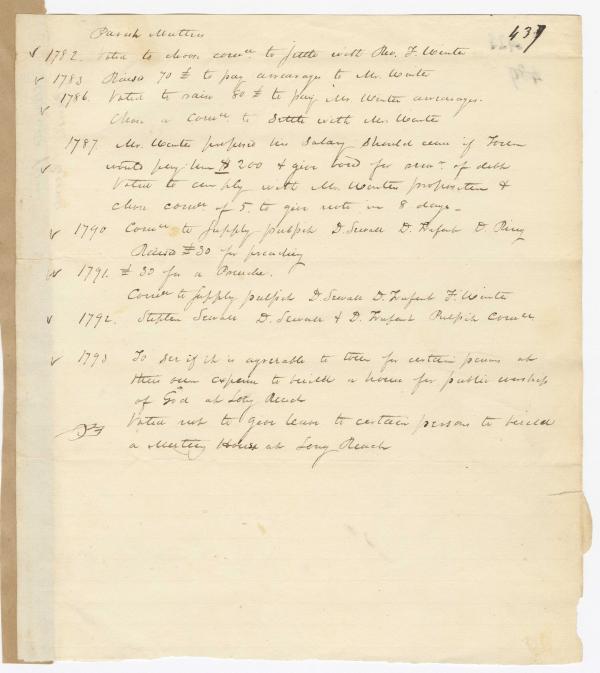 437
Parish Matters
1782. Voted to choose comee to settle with Rev. F. Winter
1783 Raised 70 £ to pay arrearages to Mr. Winter
1786. Voted to raise 80 £ to pay Mr. Winter arrearages.
Chose a Comee to settle with Mr. Winter
1787 Mr. Winter proposed his Salary should cease if Town
would pay him 200 & give bond for amt. of debt
Voted to comply with Mr. Winters proposition &
chose comee of 5. to give note in 8 days.
1790 Comee to Supply pulpit D. Sewall D. Trufant D. Ring
Raised £30 for preaching
1791. £30 for a Preacher.
Comee to Supply pulpit D. Sewall D. Trufant F. Winter
1792. Stephen Sewall D. Sewall & D. Trufant Pulpit Comee
1793 To see if it is agreeable to town for certain persons at
their own expense to build a house for public worship
of God at Long Reach
Voted not to give leave to certain persons to build
a Meeting House at Long Reach